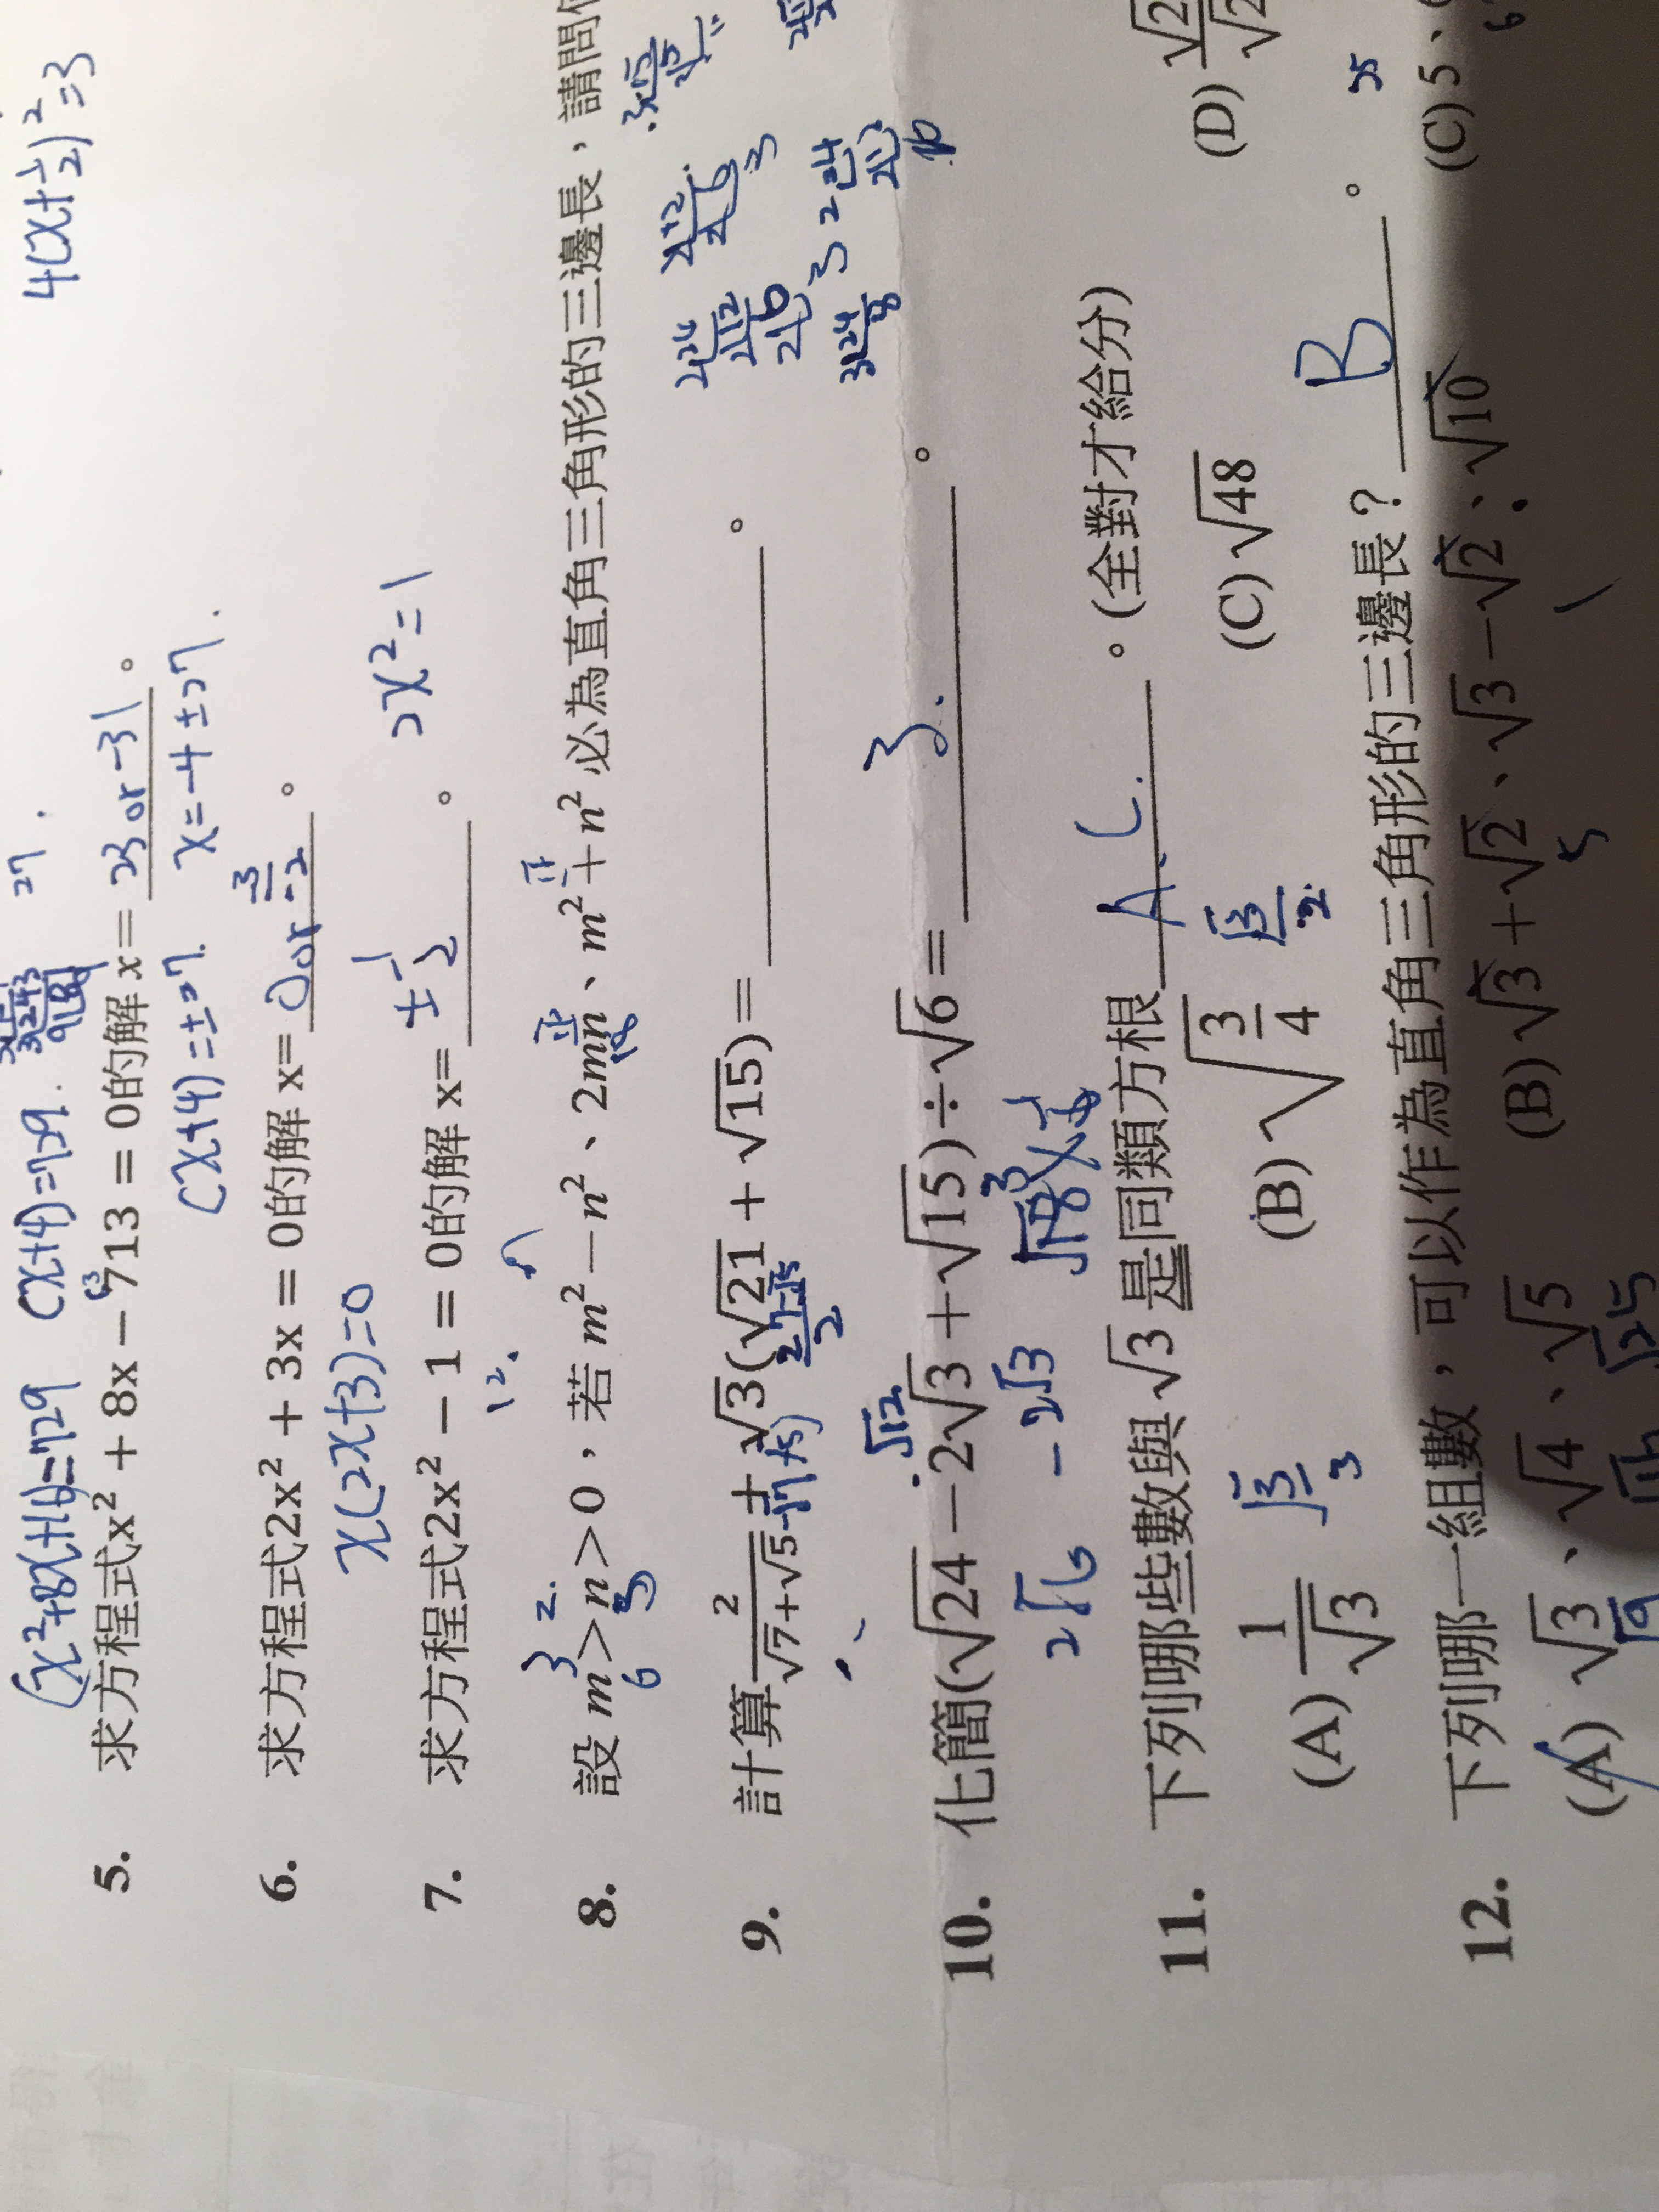 4(x+1/2)²=3
(x²+8x+16=729 (x+4)=729. 27.
5. 求方程式x² + 8x − 713 = 0的解 x= 23 or -31 。
(x+4)=±27. x=-4±27.
6. 求方程式2x² + 3x = 0的解 x= 0 or -3/-2 。
x(2x+3)=0
7. 求方程式2x² − 1 = 0的解 x= ±1/2 。 2x²=1
8. 設 m > n > 0，若 m² − n²、2mn、m² + n² 必為直角三角形的三邊長，請問
9. 計算 2/(√7+√5) + √3(√21 + √15) = 。
10. 化簡(√24 − 2√3 + √15) ÷ √6 = 3. 。
2√6 -2√3
11. 下列哪些數與 √3 是同類方根 A.C. 。(全對才給分)
(A) 1/√3 √3/3 (B) √(3/4) √3/2 (C) √48 (D) √2/√2
12. 下列哪一組數，可以作為直角三角形的三邊長？ B 。
(A) √3、√4、√5 (B) √3 + √2、√3 − √2、√10 (C) 5、